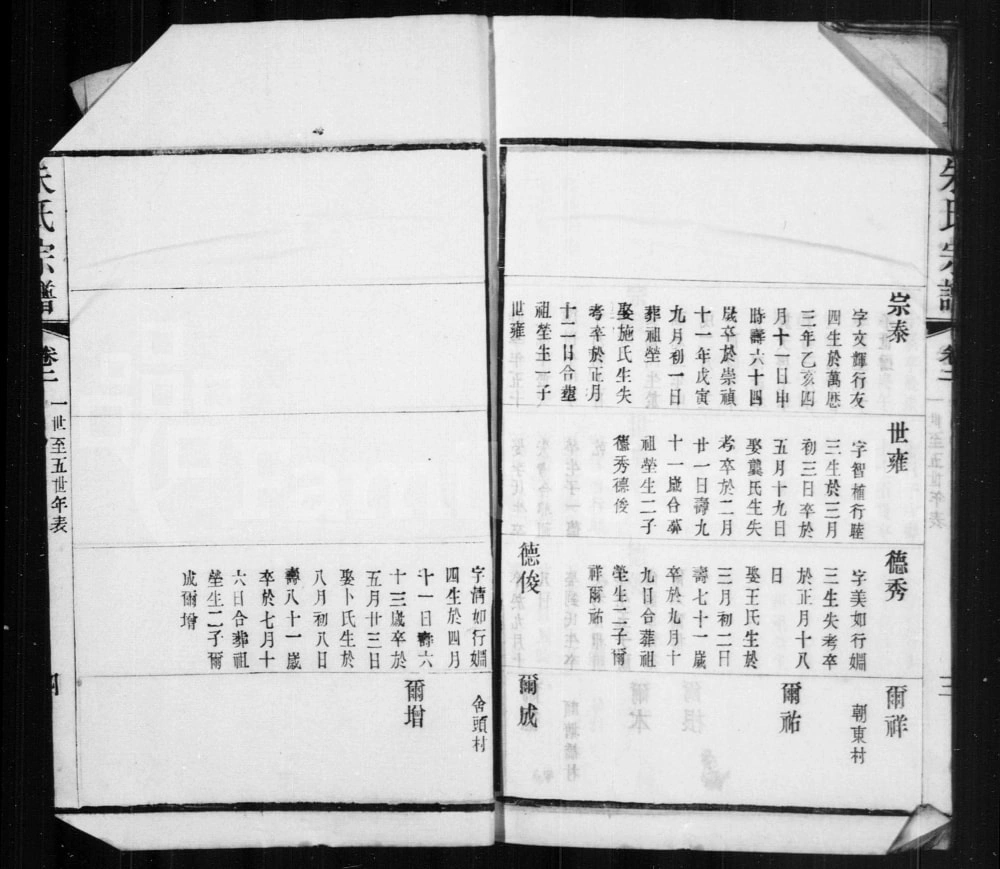 朱氏宗譜
卷二
一世至五世年表
三
宗泰
字文輝行友
四生於萬歷
三年乙亥四
月十一日申
時壽六十四
歲卒於崇禎
十一年戊寅
九月初一日
葬祖塋
娶施氏生失
考卒於正月
十二日合塟
祖塋生一子
世雍
世雍
字智植行睦
三生於三月
初三日卒於
五月十九日
娶龔氏生失
考卒於二月
廿一日壽九
十一歲合葬
祖塋生二子
德秀德俊
德秀
字美如行嫺
三生失考卒
於正月十八
日
娶王氏生於
三月初二日
壽七十一歲
卒於九月十
九日合葬祖
塋生二子爾
祥爾祐
德俊
爾祥
朝東村
爾祐
爾成
字清如行嫺
四生於四月
十一日壽六
十三歲卒於
五月廿三日
娶卜氏生於
八月初八日
壽八十一歲
卒於七月十
六日合葬祖
塋生二子爾
成爾增
舍頭村
爾增
朱氏宗譜
卷二
一世至五世年表